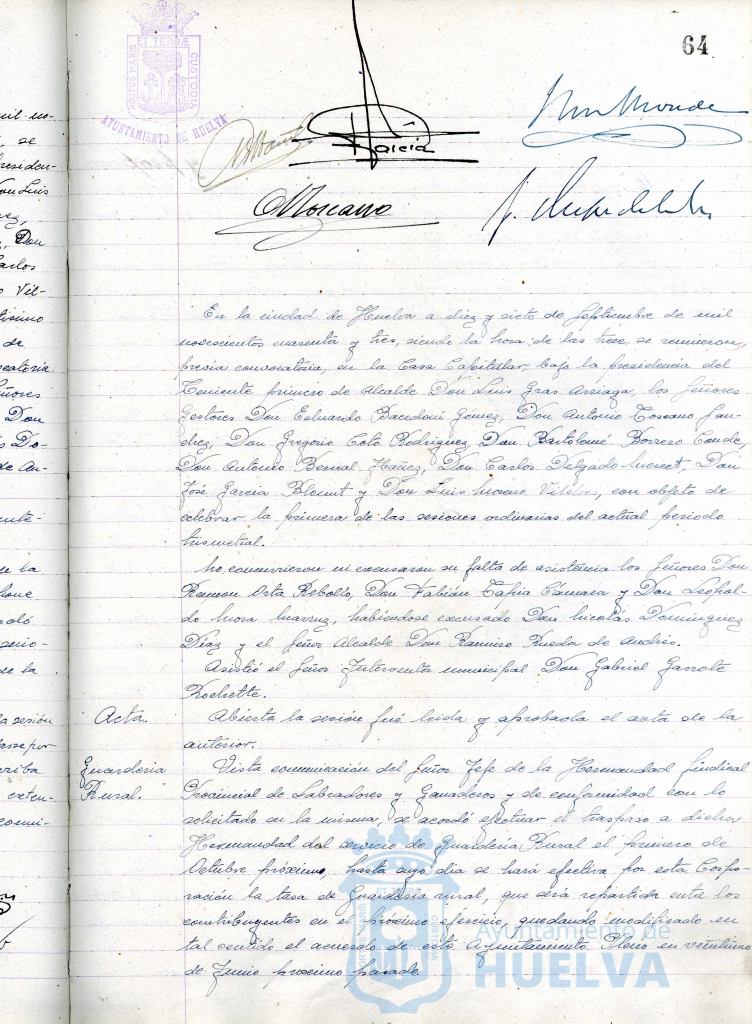 64
PORTUS MARIS ET TERRÆ CUSTODIA
AYUNTAMIENTO DE HUELVA
García
Toscano
En la ciudad de Huelva a diez y siete de Septiembre de mil
novecientos cuarenta y tres, siendo la hora de las trece, se reunieron,
previa convocatoria, en la Casa Capitular, bajo la presidencia del
Teniente primero de Alcalde Don Luis Gras Arriaga, los Señores
Gestores Don Eduardo Bacedoni Gómez, Don Antonio Toscano San-
chez, Don Gregorio Coto Rodriguez, Don Bartolomé Borrero Conde,
Don Antonio Bernal Ibañez, Don Carlos Delgado, Don
José Garcia y Don Luis Moreno, con objeto de
celebrar la primera de las sesiones ordinarias del actual periodo
trimestral.
No concurrieron ni excusaron su falta de asistencia los Señores Don
Ramon Orta Rebollo, Don Fabián Tapia Cámara y Don Leopol-
do Mora, habiéndose excusado Don Nicolás Dominguez
Díaz y el Señor Alcalde Don Ramiro Rueda de Andrés.
Asistió el Señor Interventor municipal Don Gabriel Garrote
Rochette.
Acta.
Abierta la sesión fué leida y aprobada el acta de la
anterior.
Guarderia
Rural.
Vista comunicación del Señor Jefe de la Hermandad Sindical
Provincial de Labradores y Ganaderos y de conformidad con lo
solicitado en la misma, se acordó efectuar el traspaso a dicha
Hermandad del servicio de Guardería Rural el primero de
Octubre próximo, hasta cuyo dia se hará efectiva por esta Corpo-
ración la tasa de Guardería rural, que será repartida entre los
contribuyentes en el próximo ejercicio, quedando modificado en
tal sentido el acuerdo de este Ayuntamiento Pleno en veintiuno
de Junio proximo pasado.
Ayuntamiento de
HUELVA